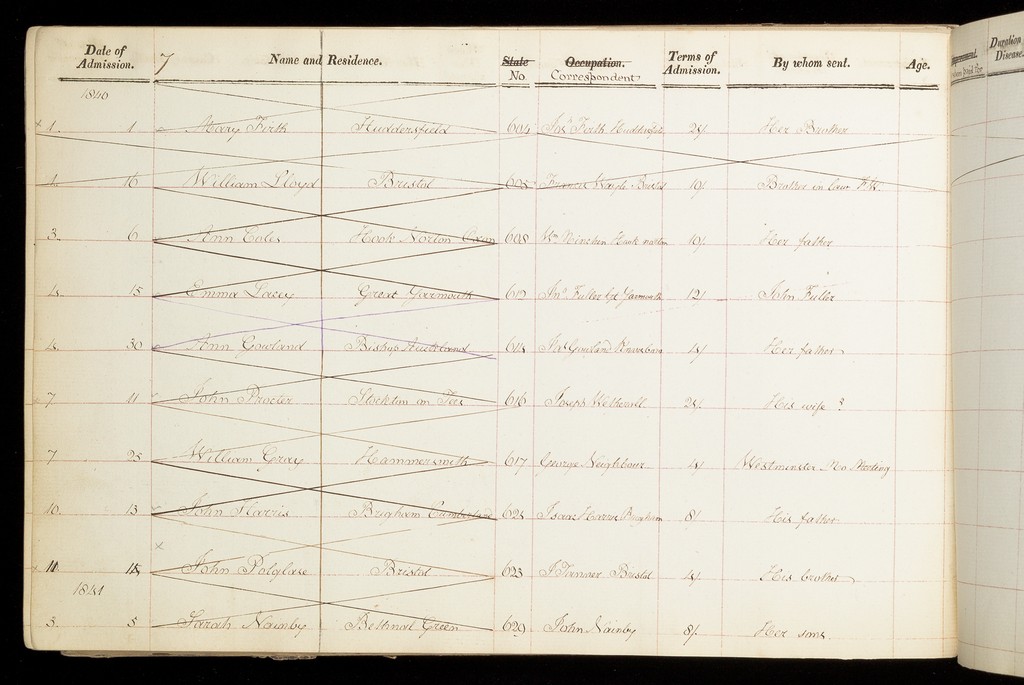 Date of Admission. 7 Name and Residence. State No. Occupation. Correspondent Terms of Admission. By whom sent. Age. Duration Disease
1840
1 1 Mary Firth Huddersfield 604 Jas Firth Hudd 2s/ Her Brother
16 William Lloyd Bristol 605 Francis 10/ Brother in law
3 6 Ann Coles Hook Norton Oxon 608 Wm Hook norton 10/ Her father
4 15 Emma Lacey Great Yarmouth 612 Jno Fuller Yarmouth 12/ John Fuller
4 30 Ann Gowland Bishop Auckland 614 Jas Gowland 4/ Her father
7 11 John Procter Stockton on Tees 616 Joseph Wetherall His wife ?
7 25 William Gray Hammersmith 617 George Neighbour 4/ Westminster Mo Meeting
10 13 John Harris Brigham Cumberland Isaac Harris Brigham 8/ His father
11 15 John Polglase Bristol 623 J Tanner Bristol 4/ His brother
1841
3 5 Sarah Nainby Bethnal Green 629 John Nainby 8/ Her sons